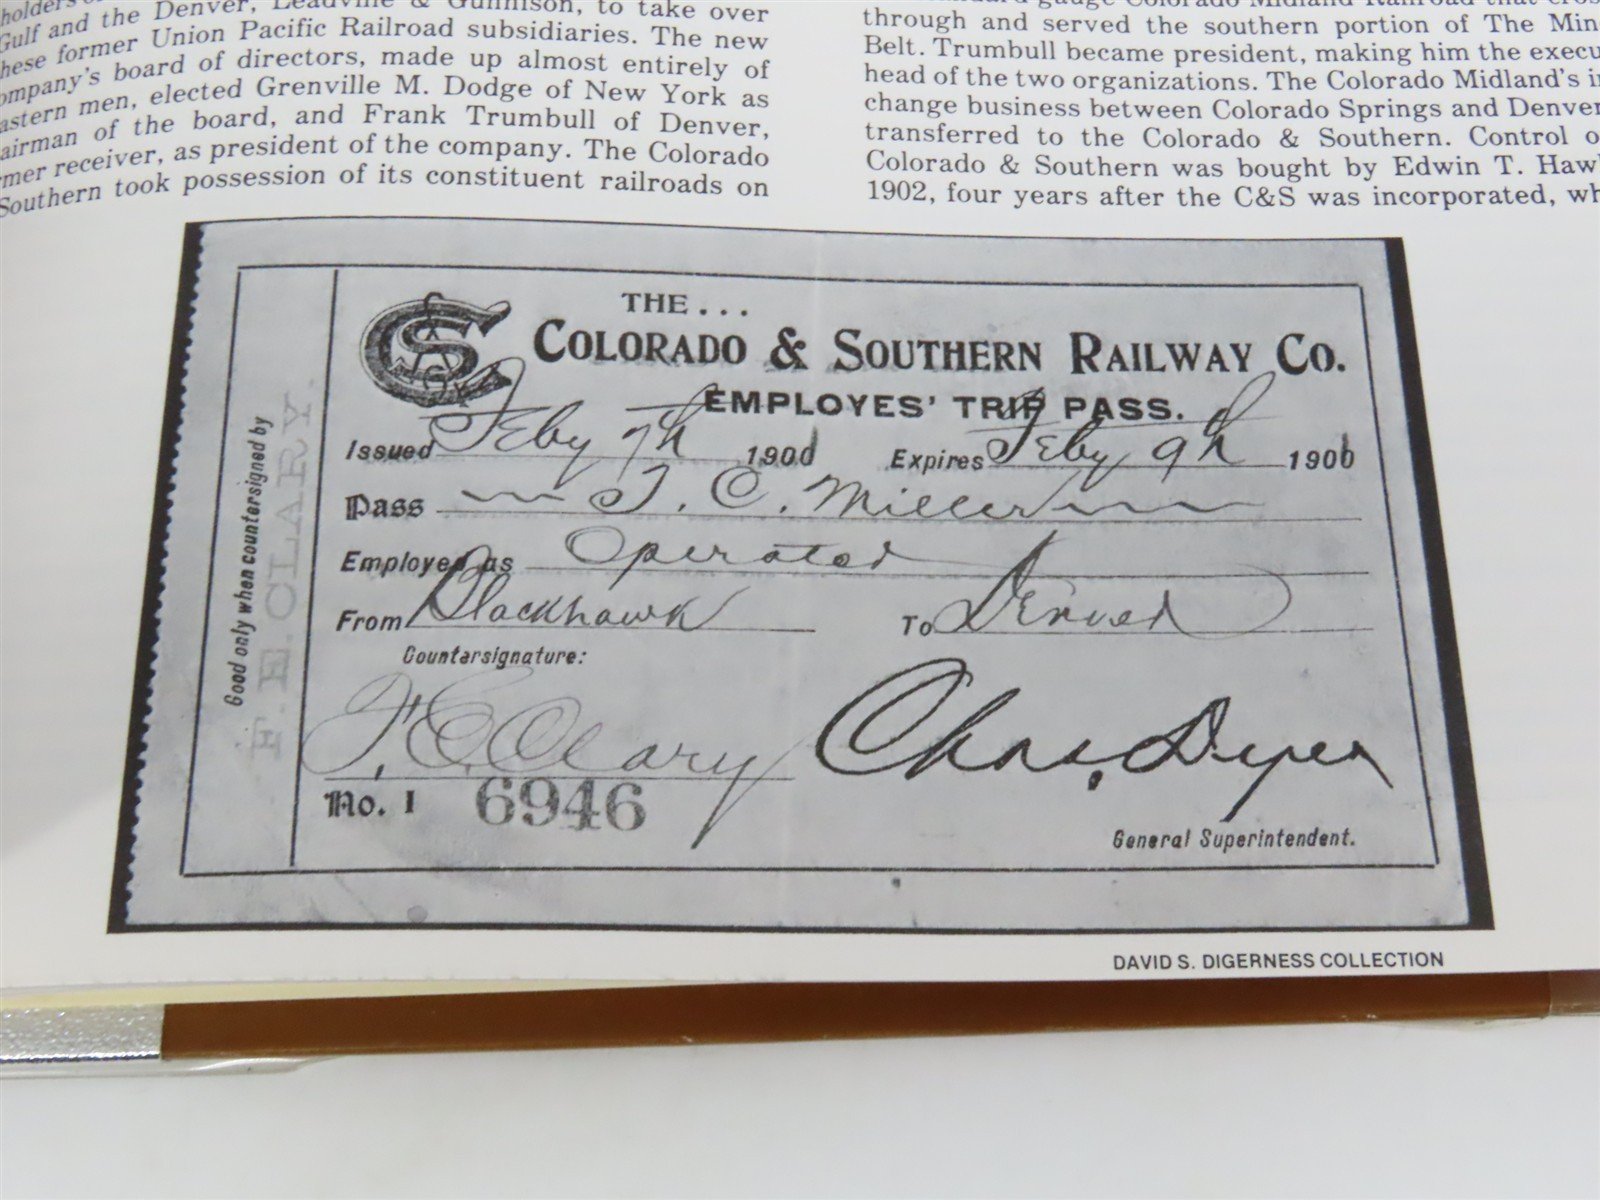 Gulf and the Denver, Leadville & Gunnison, to take over
these former Union Pacific Railroad subsidiaries. The new
company's board of directors, made up almost entirely of
eastern men, elected Grenville M. Dodge of New York as
chairman of the board, and Frank Trumbull of Denver,
former receiver, as president of the company. The Colorado
Southern took possession of its constituent railroads on
gauge Colorado Midland Railroad that
through and served the southern portion of The Min
Belt. Trumbull became president, making him the execu
head of the two organizations. The Colorado Midland's in
change business between Colorado Springs and Denver
transferred to the Colorado & Southern. Control o
Colorado & Southern was bought by Edwin T. Haw
1902, four years after the C&S was incorporated, wh
THE...
C&S COLORADO & SOUTHERN RAILWAY CO.
EMPLOYES' TRIP PASS.
Issued Feby 7th 1901 Expires Feby 9th 1901
Pass T. C. Miller
Employed as Operator
From Blackhawk To Denver
Countersignature:
F. E. Clary Chas. Dyer
No. 1 6946
General Superintendent.
Good only when countersigned by
F. E. CLARY.
DAVID S. DIGERNESS COLLECTION